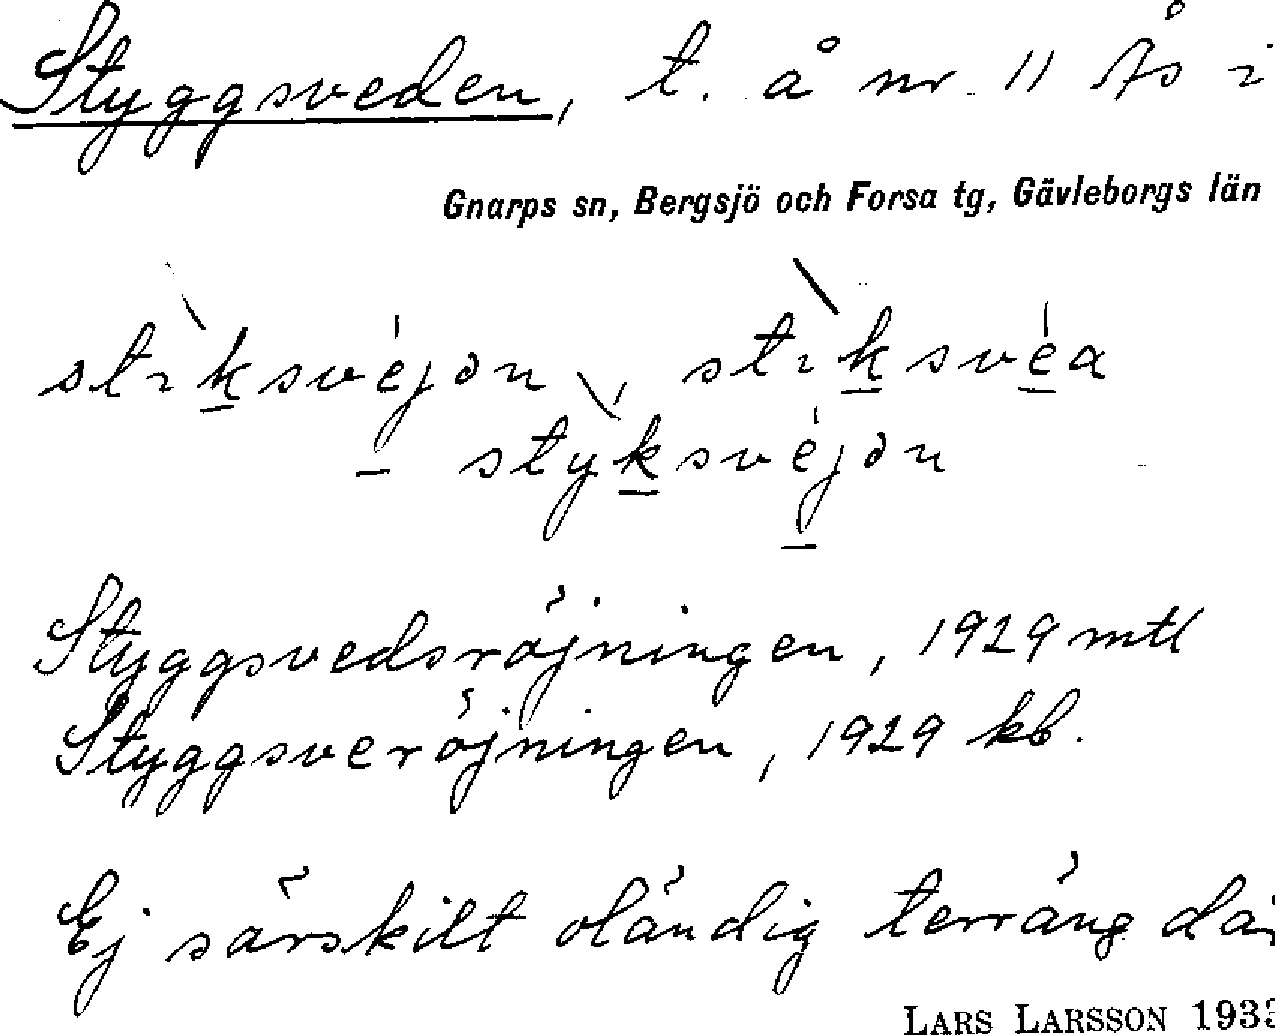 Styggsveden, t. å nr 11 Ås i
Gnarps sn, Bergsjö och Forsa tg, Gävleborgs län
stıksvejən, stıksvea
- styksvejən
Styggsvedsröjningen, 1929 mtl
Styggsveröjningen, 1929 kb.
Ej särskilt oländig terräng där
LARS LARSSON 1933